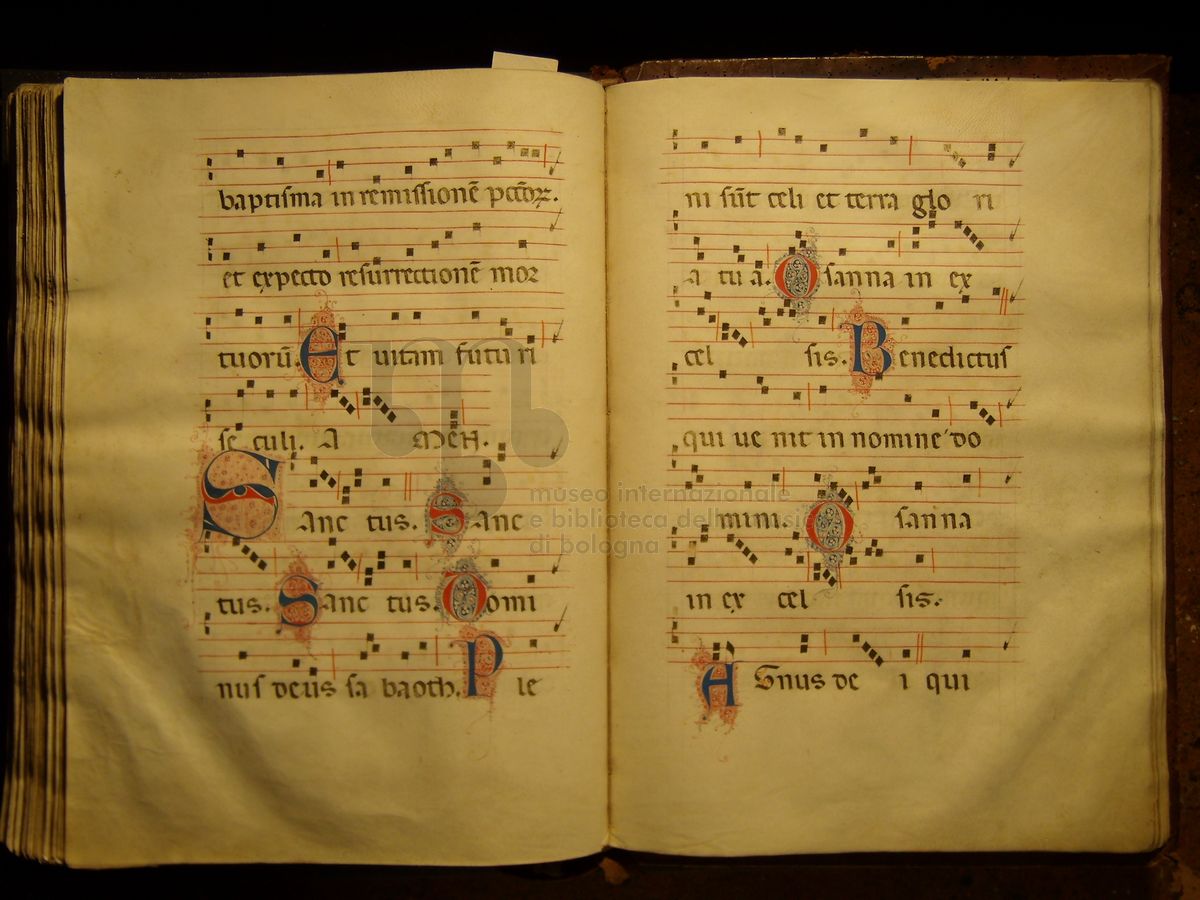 baptisma in remissionē pccōꝝ.
et expecto resurrectionē moꝛ
tuorū. Et uitam futu ri
se culi. A MEN.
Sanc tus. Sanc
tus. Sanc tus. Domi
nus deus sa baoth. Ple
ni sūt celi et terra glo ri
a tu a. Osanna in ex
cel sis. Benedictus
qui ue nit in nomine do
mini. Osanna
in ex cel sis.
AGnus de i qui
museo internazionale
e biblioteca della musica
di bologna